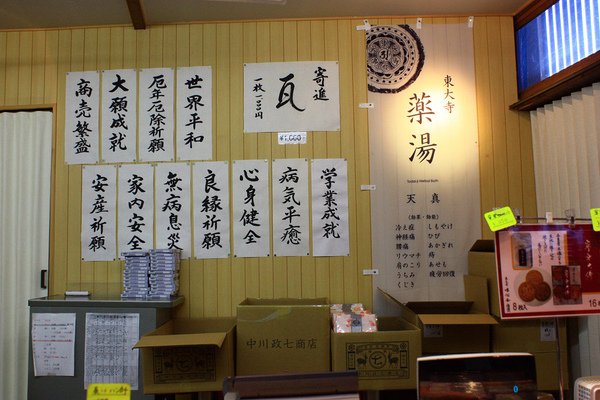 世界平和
厄年厄除祈願
大願成就
商売繁盛
寄進
瓦
一枚一000円
¥1,000
学業成就
病気平癒
心身健全
良縁祈願
無病息災
家内安全
安産祈願
東大寺
薬湯
Todaiji Herbal Bath
天真
(効果・効能)
冷え症
しもやけ
神経痛
ひび
腰痛
あかぎれ
リウマチ
痔
肩のこり
あせも
うちみ
疲労回復
くじき
中川政七商店
8枚入